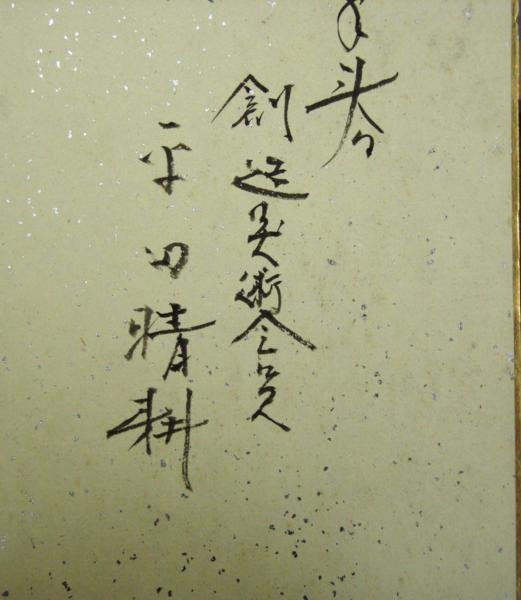 年春
創造美術会員
平田晴耕